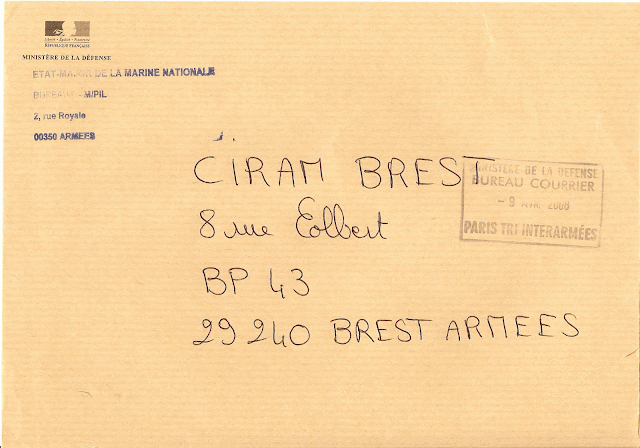 Liberté • Égalité • Fraternité
RÉPUBLIQUE FRANÇAISE
MINISTÈRE DE LA DÉFENSE
ETAT-MAJOR DE LA MARINE NATIONALE
BUREAU - M/PIL
2, rue Royale
00350 ARMEES
CIRAM BREST
8 rue Colbert
BP 43
29 240 BREST ARMEES
MINISTERE DE LA DEFENSE
BUREAU COURRIER
- 9 AVR. 2008
PARIS TRI INTERARMÉES